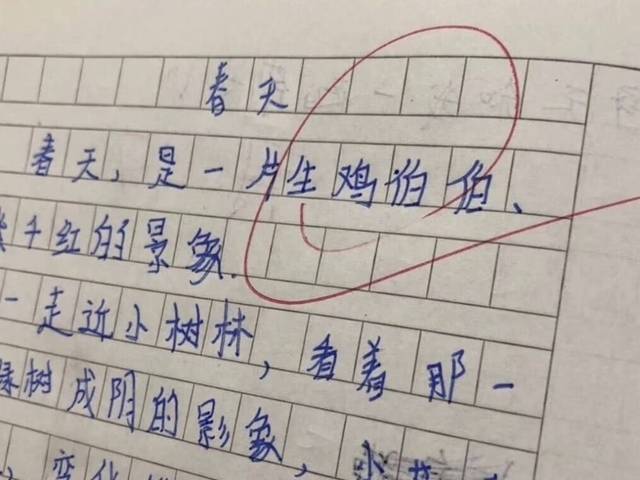 春天
春天，是一片生鸡伯伯、
千红的景象.
一走近小树林，看着那一
树成阴的影象，小
变化